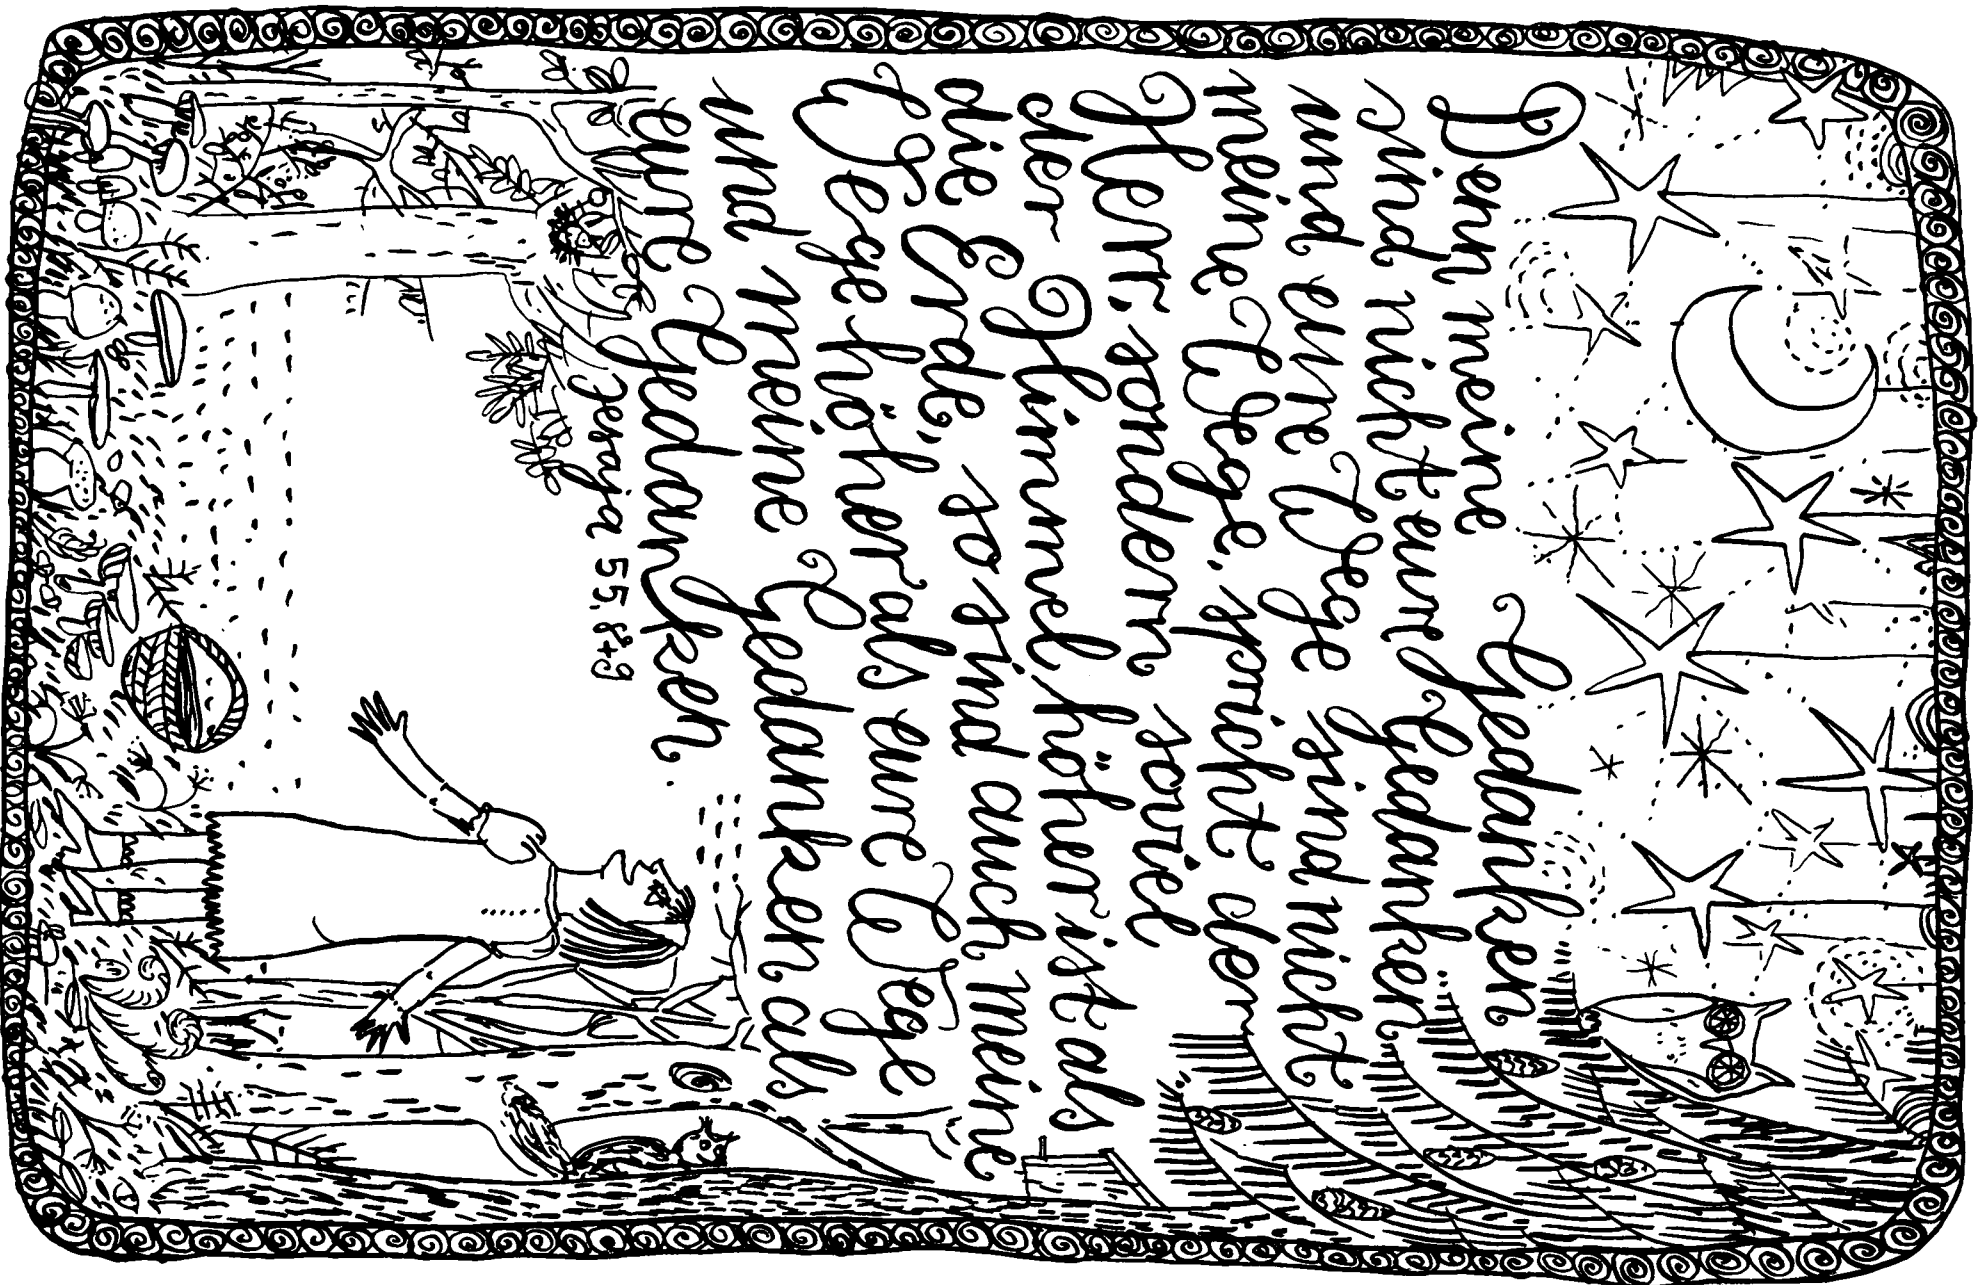 Denn meine Gedanken
sind nicht eure Gedanken
und eure Wege sind nicht
meine Wege, spricht der
Herr, sondern soviel
der Himmel höher ist als
die Erde, so sind auch meine
Wege höher als eure Wege
und meine Gedanken als
eure Gedanken.
Jesaja 55,8+9